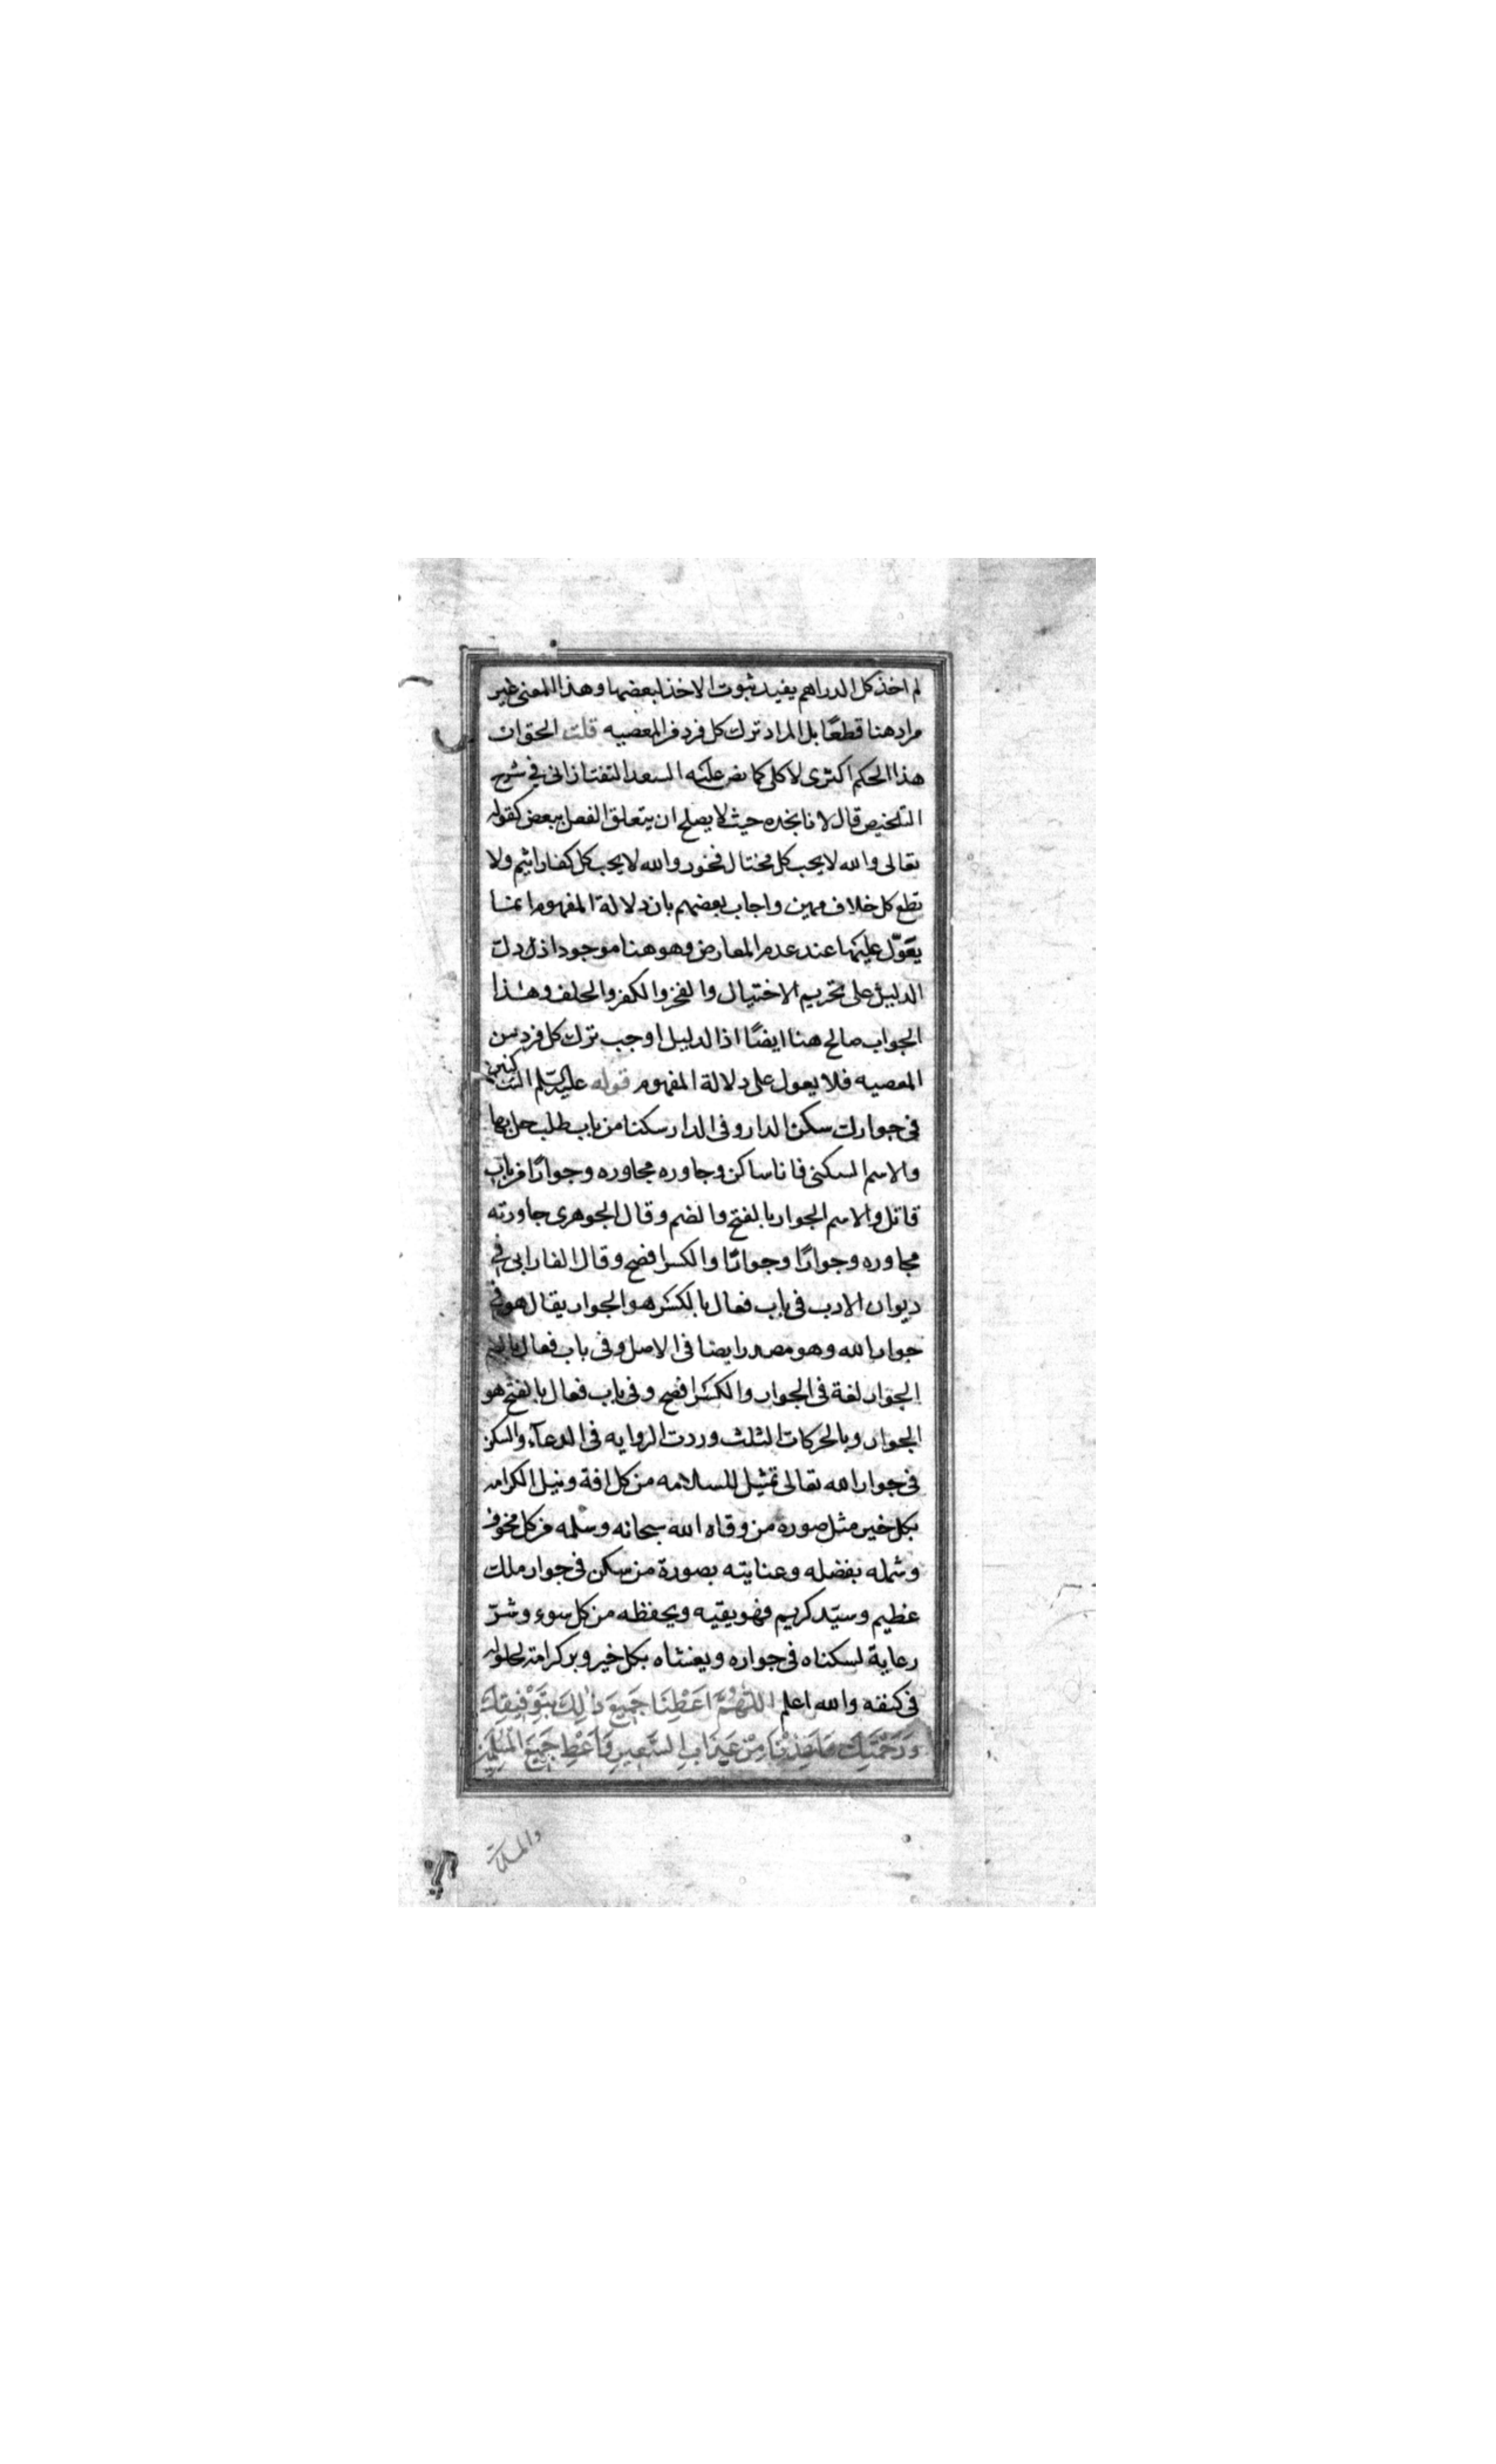 لم اخذ كل الدراهم يفيد ثبوت الاخذ لبعضها وهذا المعنى غير
مراد هنا قطعًا بل المراد ترك كل فرد من المعصيه قلت الحق ان
هذا الحكم اكثرى لا كلى كما نص عليه السعد التفتازانى فى شرح
التلخيص قال لانا نجده حيث لا يصلح ان يتعلق الفعل ببعض كقوله
تعالى والله لا يحب كل مختال فخور والله لا يحب كل كفار اثيم ولا
تطع كل حلاف مهين واجاب بعضهم بان دلالة المفهوم انما
يعوّل عليها عند عدم المعارض وهو هنا موجود اذ دل
الدليل على تحريم الاختيال والفخر والكفر والحلف وهذا
الجواب صالح هنا ايضًا اذ الدليل اوجب ترك كل فرد من
المعصيه فلا يعول على دلالة المفهوم قوله عليه السلم الساكنين
فى جوارك سكن الدار وفى الدار سكنا من باب طلب حل بها
والاسم السكنى فانا ساكن وجاوره مجاوره وجوارًا من باب
قاتل والاسم الجوار بالفتح والضم وقال الجوهرى جاورته
مجاوره وجوارًا وجوارًا والكسر افصح وقال الفارابى فى
ديوان الادب فى باب فعال بالكسر هو الجوار يقال هو فى
جوار الله وهو مصدر ايضا فى الاصل وفى باب فعال بالضم
الجوار لغة فى الجوار والكسر افصح وفى باب فعال بالفتح هو
الجوار وبالحركات الثلث وردت الروايه فى الدعآء والسكن
فى جوار الله تعالى تمثيل للسلامه من كل افة ونيل الكرامه
بكل خير مثل صورة من وقاه الله سبحانه وسلمه من كل مخوف
وشمله بفضله وعنايته بصورة من سكن فى جوار ملك
عظيم وسيّد كريم فهو يقيه ويحفظه من كل سوء وشرّ
رعاية لسكناه فى جواره ويغشاه بكل خير وبر كرامة لحلوله
فى كنفه والله اعلم اللّهُمَّ اَعْطِنَا جَمِيعَ ذٰلِكَ بِتَوْفِيقِكَ
وَرَحْمَتِكَ وَاَعِذْنَا مِنْ عَذَابِ السَّعِيرِ وَاَعْطِ جَمِيعَ المُسْلِمِينَ
والمسلمات